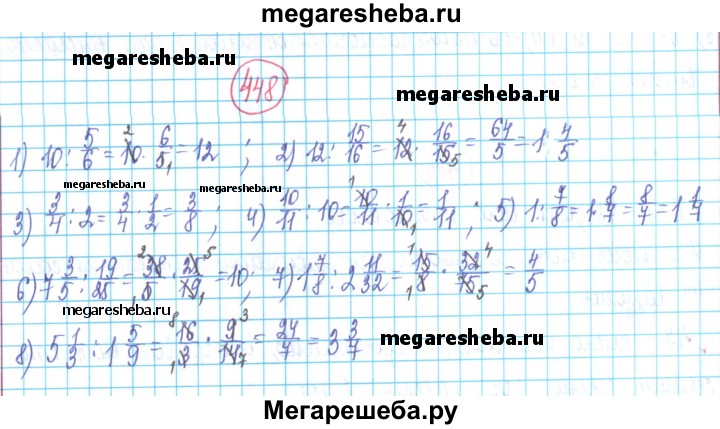 megaresheba.ru
megaresheba.ru
448
megaresheba.ru
1) 10 : 5/6 = 10 · 6/5 = 12 ; 2) 12 : 15/16 = 12 · 16/15 = 64/5 = 1 : 4/5
megaresheba.ru megaresheba.ru
3) 3/4 : 2 = 3/4 · 1/2 = 3/8 ; 4) 10/11 : 10 = 10/11 · 1/10 = 1/11 ; 5) 1 : 7/8 = 1 · 8/7 = 8/7 = 1 1/7
6) 7 3/5 : 19/25 = 38/5 · 25/19 = 10 ; 7) 1 7/8 : 2 11/32 = 15/8 · 32/75 = 4/5
megaresheba.ru
8) 5 1/3 : 1 5/9 = 16/3 · 9/14 = 24/7 = 3 3/7
megaresheba.ru
Мегарешеба.ру